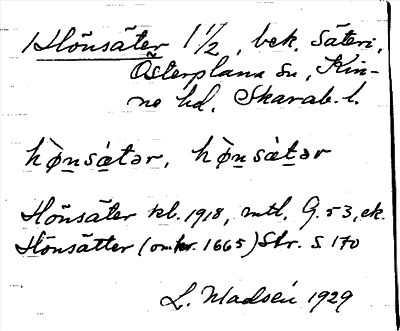 Hönsäter 1 1/2, bek. säteri,
Österplana sn, Kin-
ne hd, Skarab. l.
hø̀nsàtər, hø̀nsàtər
Hönsäter kl. 1918, mtl. G. 53, ek.
Hönsätter (omkr. 1665) Str. S 170
L. Madsén 1929